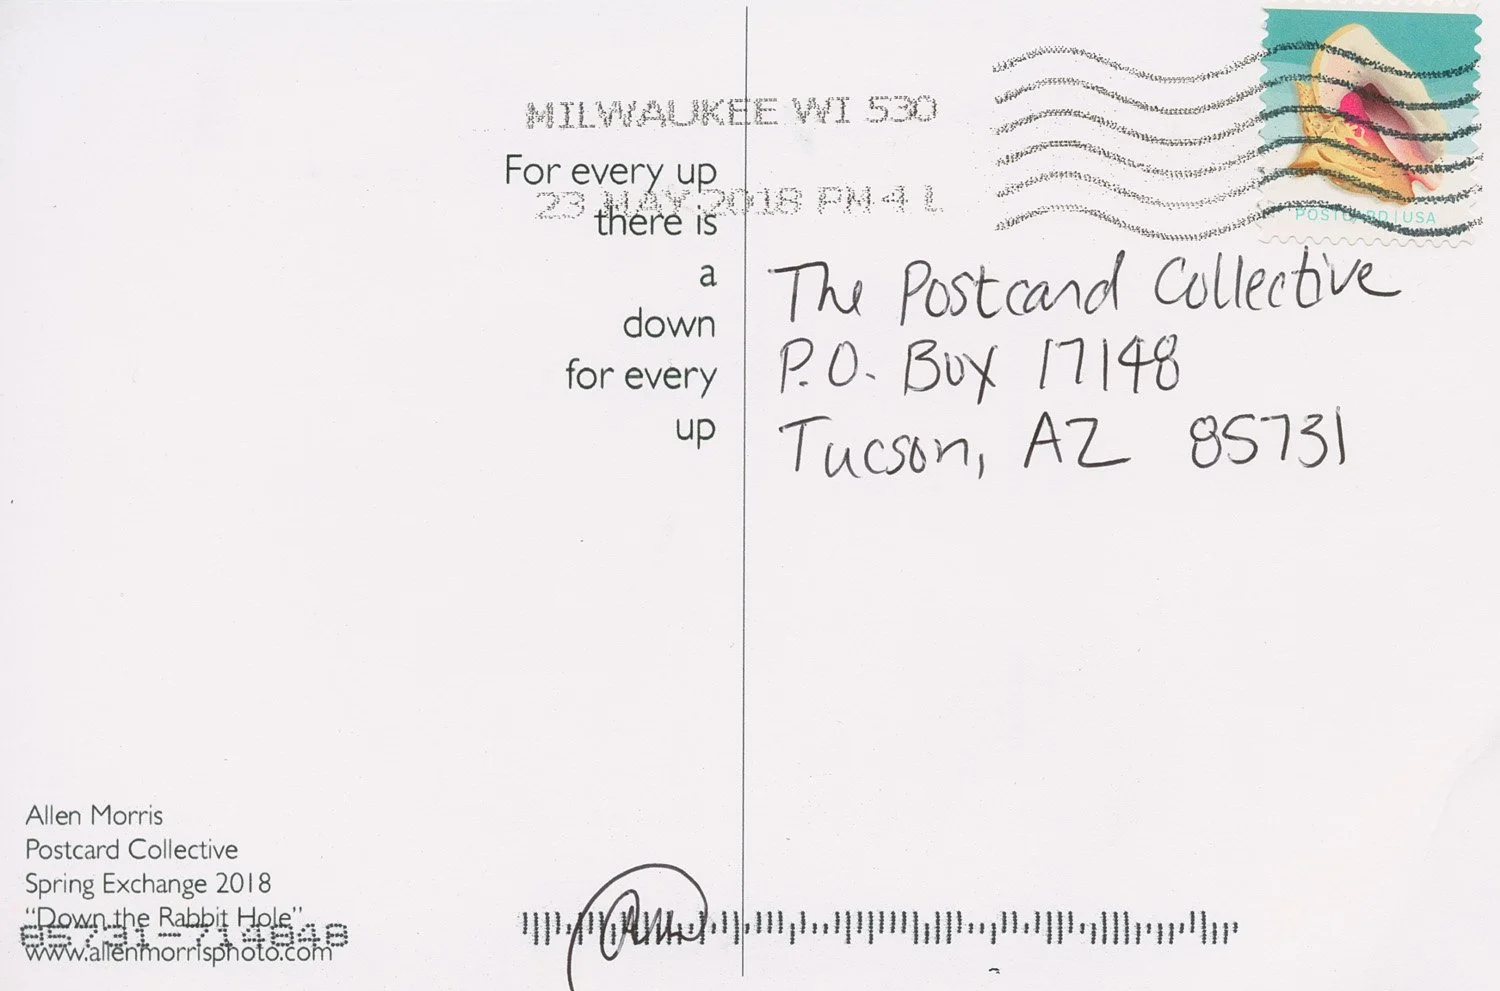 MILWAUKEE WI 530
23 MAY 2018 PM 4 L
POSTCARD | USA
For every up
there is
a
down
for every
up
The Postcard Collective
P.O. Box 17148
Tucson, AZ 85731
Allen Morris
Postcard Collective
Spring Exchange 2018
“Down the Rabbit Hole”
85731-714848
www.allenmorrisphoto.com